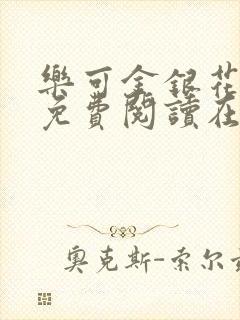 樂可金銀花
免費閱讀在
奧克斯-索尔